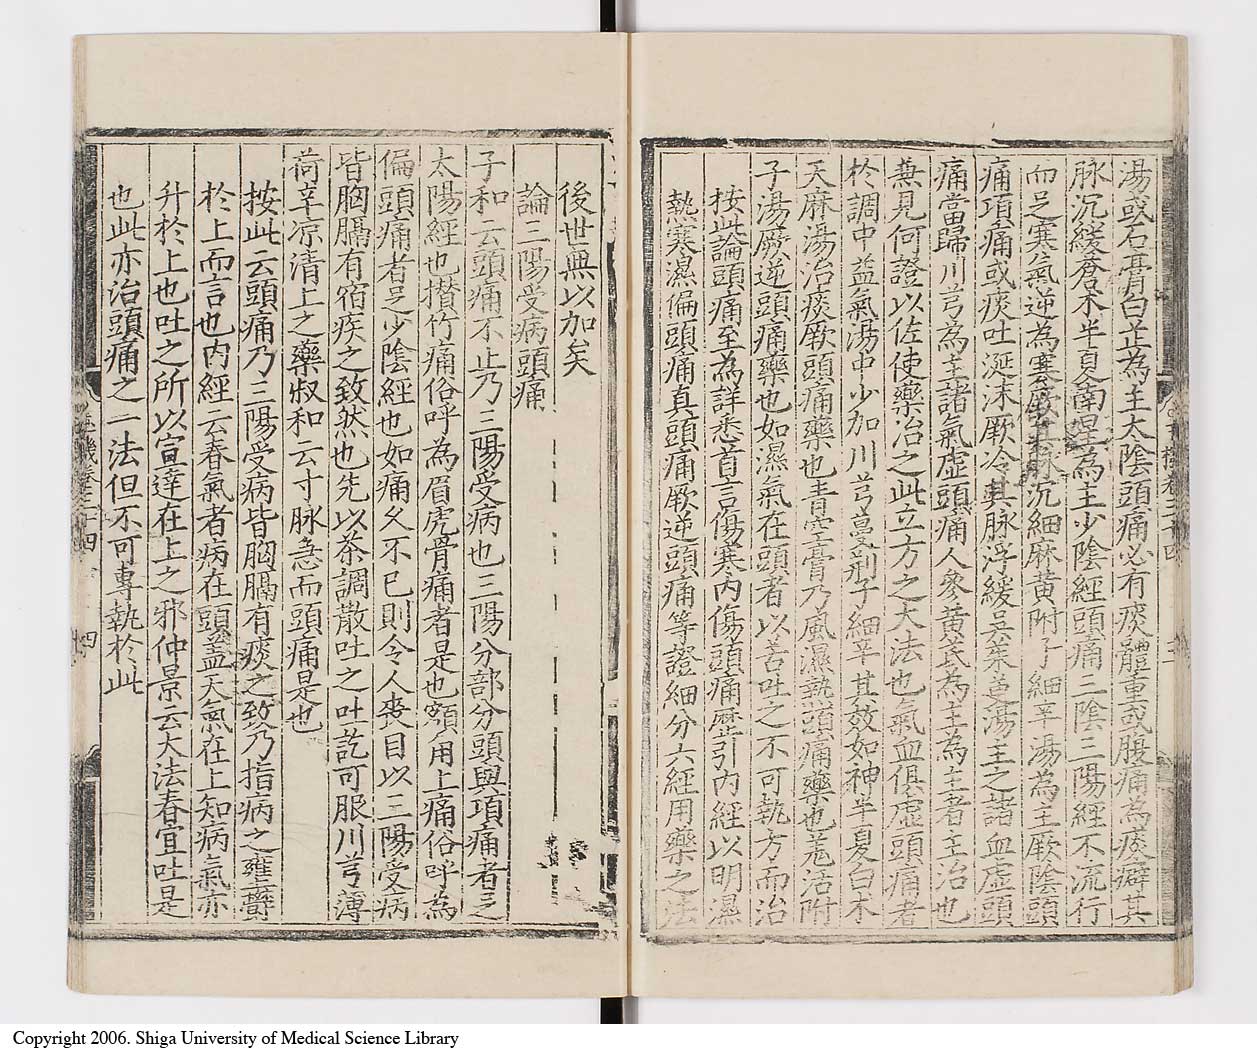 湯或石膏白芷為主太陰頭痛必有痰體重或腹痛為痰癖其
脉沉緩蒼术半夏南星為主少陰經頭痛三陰三陽經不流行
而足寒氣逆為寒厥其脉沉細麻黄附子細辛湯為主厥陰頭
痛項痛或痰吐涎沫厥冷其脉浮緩吴茱萸湯主之諸血虛頭
痛當歸川芎為主諸氣虛頭痛人參黄芪為主為主者主治也
兼見何證以佐使藥治之此立方之大法也氣血俱虛頭痛者
於調中益氣湯中少加川芎蔓荊子細辛其效如神半夏白术
天麻湯治痰厥頭痛藥也青空膏乃風濕熱頭痛藥也羌活附
子湯厥逆頭痛藥也如濕氣在頭者以苦吐之不可執方而治
按此論頭痛至為詳悉首言傷寒内傷頭痛歷引内經以明濕
熱寒濕偏頭痛真頭痛厥逆頭痛等證細分六經用藥之法
後世無以加矣
論三陽受病頭痛
子和云頭痛不止乃三陽受病也三陽分部分頭與項痛者足
太陽經也攢竹痛俗呼為眉虎骨痛者是也額角上痛俗呼為
偏頭痛者足少陰經也如痛久不已則令人喪目以三陽受病
皆胸膈有宿痰之致然也先以茶調散吐之吐訖可服川芎薄
荷辛凉清上之藥叔和云寸脉急而頭痛是也
按此云頭痛乃三陽受病皆胸膈有痰之致乃指病之壅鬱
於上而言也内經云春氣者病在頭蓋天氣在上知病氣亦
升於上也吐之所以宣達在上之邪仲景云大法春宜吐是
也此亦治頭痛之一法但不可專執於此
四
Copyright 2006. Shiga University of Medical Science Library